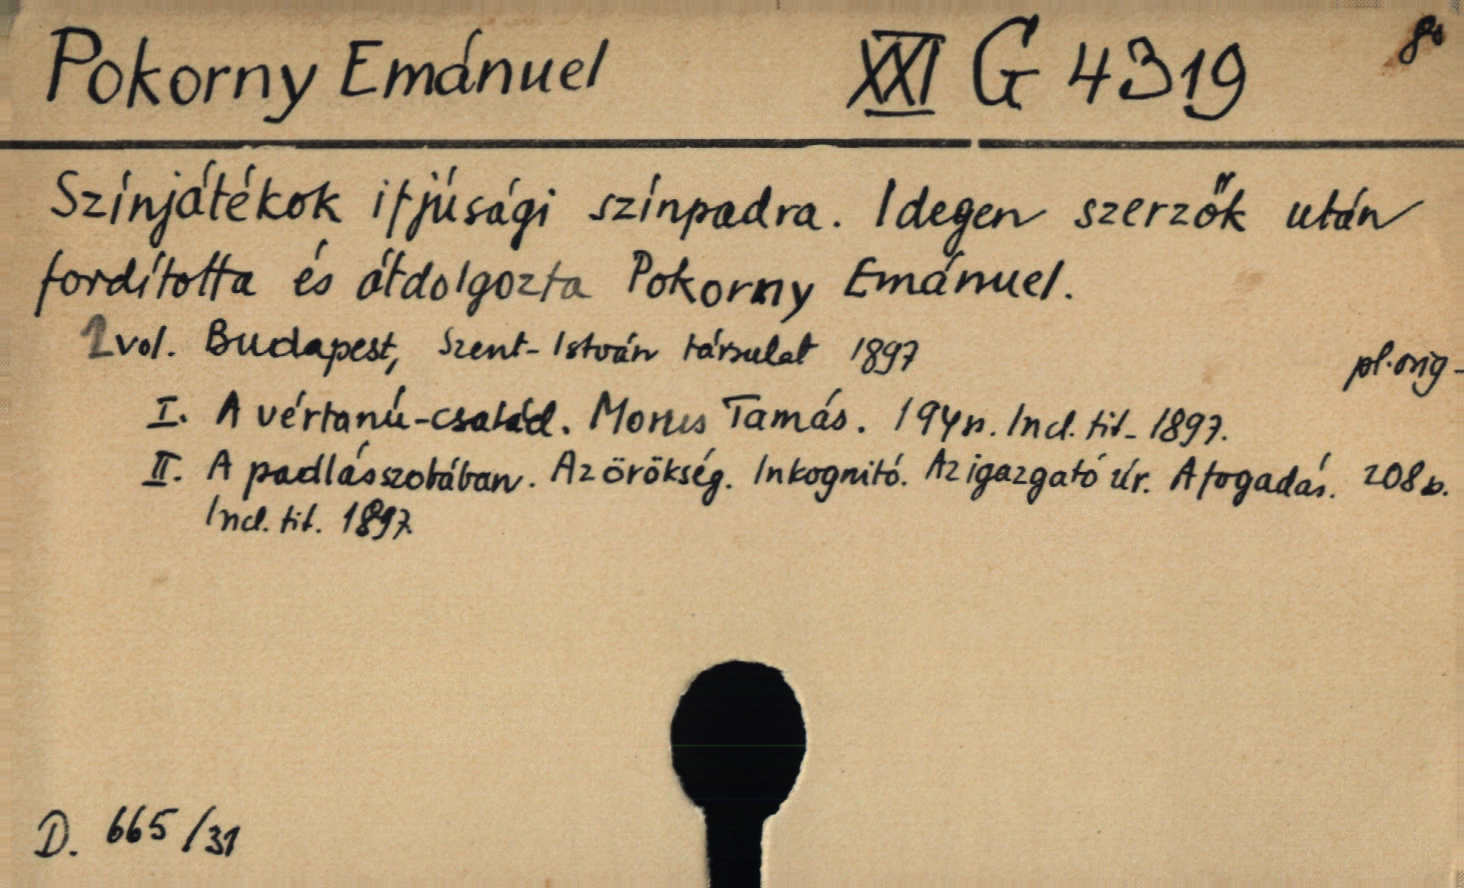 Pokorny Emánuel XXI G 4319 8o
Színjátékok ifjúsági színpadra. Idegen szerzők után
fordította és átdolgozta Pokorny Emánuel.
2 vol. Budapest, Szent-István társulat 1897 pl. orig-
I. A vértanú-család. Morus Tamás. 194 p. Incl. tit. 1897.
II. A padlásszobában. Az örökség. Inkognitó. Az igazgató úr. A fogadás. 208 p.
Incl. tit. 1897.
D. 665/31